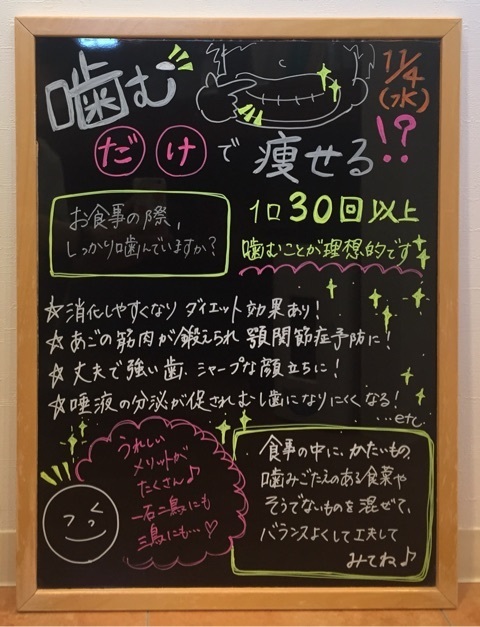 噛む
11/4
(水)
だけで痩せる!?
お食事の際、
しっかり噛んでいますか?
1口30回以上
噛むことが理想的です
☆消化しやすくなり ダイエット効果あり!
☆あごの筋肉が鍛えられ 顎関節症予防に!
☆丈夫で強い歯、シャープな顔立ちに!
☆唾液の分泌が促されむし歯になりにくくなる!
…etc
うれしい
メリットが
たくさん♪
一石二鳥にも
三鳥にも…♡
食事の中に、かたいもの、
噛みごたえのある食菜や
そうでないものを混ぜて、
バランスよくして工夫して
みてね♪